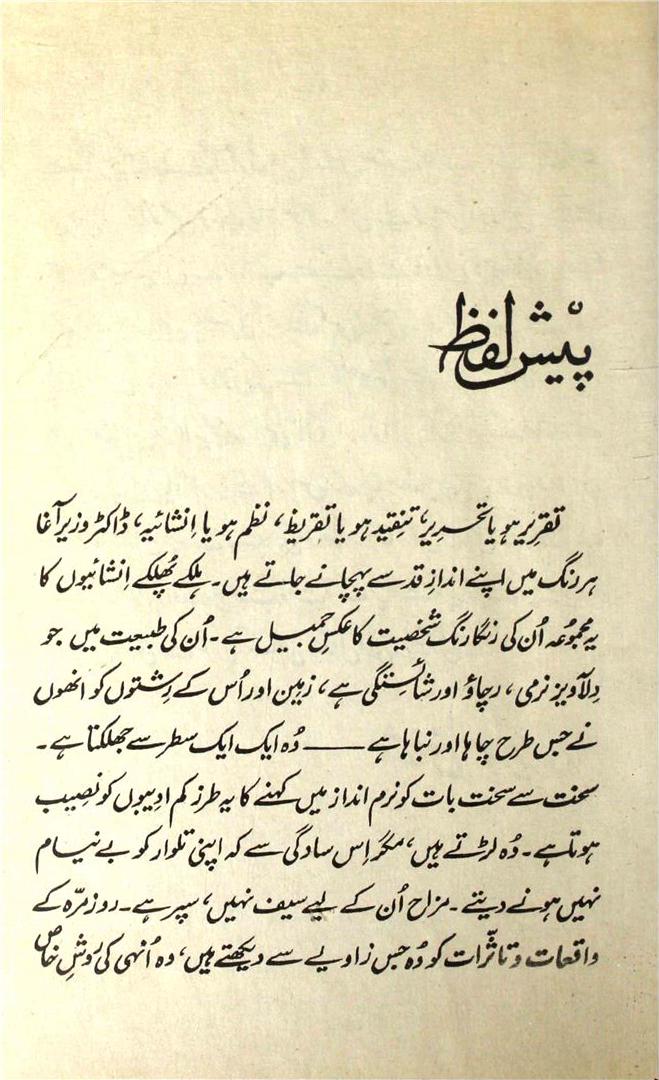 پیش لفظ
تقریر ہو یا تحریر، تنقید ہو یا تقریظ، نظم ہو یا اِنشائیہ، ڈاکٹر وزیر آغا
ہر رنگ میں اپنے اندازِ قد سے پہچانے جاتے ہیں۔ ہلکے پُھلکے اِنشائیوں کا
یہ مجموُعہ اُن کی رنگا رنگ شخصیت کا عکسِ جمیل ہے۔ اُن کی طبیعت میں جو
دِلآویز نرمی، رچاؤ اور شائستگی ہے، زمین اور اُس کے رِشتوں کو انھوں
نے جس طرح چاہا اور نباہا ہے —— وُہ ایک ایک سطر سے جھلکتا ہے۔
سخت سے سخت بات کو نرم انداز میں کہنے کا یہ طرز کم ادیبوں کو نصِیب
ہوتا ہے۔ وُہ لڑتے ہیں، مگر اِس سادگی سے کہ اپنی تلوار کو بے نیام
نہیں ہونے دیتے۔ مزاح اُن کے لیے سیف نہیں، سپر ہے۔ روزمرّہ کے
واقعات و تاثّرات کو وُہ جس زاویے سے دیکھتے ہیں، وہ اُنہی کی روِشِ خاص